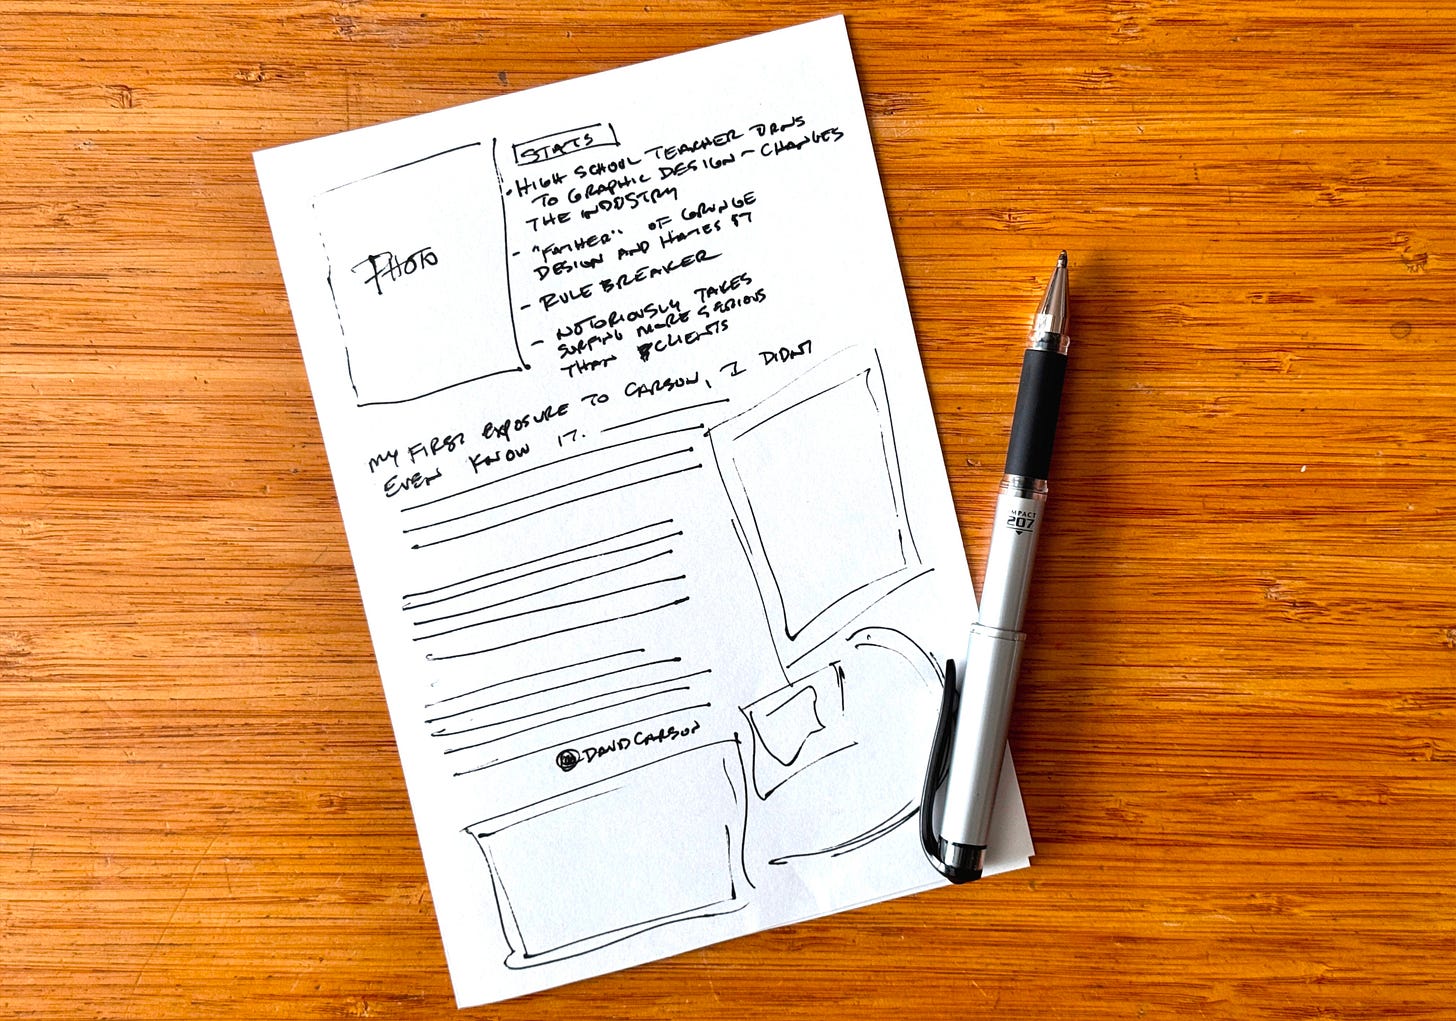 STATS
• HIGH SCHOOL TEACHER TURNS
TO GRAPHIC DESIGN - CHANGES
THE INDUSTRY
- "FATHER" OF GRUNGE
DESIGN AND HATES IT
- RULE BREAKER
- NOTORIOUSLY TAKES
SURFING MORE SERIOUS
THAN CLIENTS
PHOTO
MY FIRST EXPOSURE TO CARSON, I DIDNT
EVEN KNOW IT.
@DAVIDCARSON
IMPACT
207